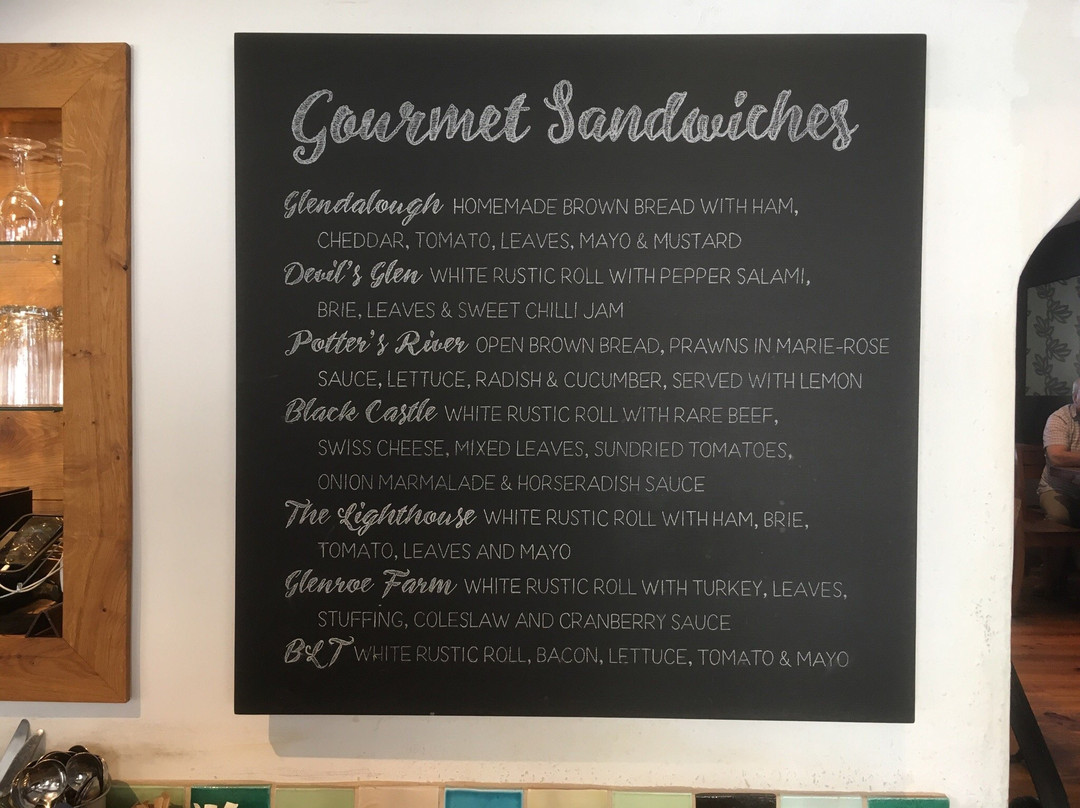 Gourmet Sandwiches
Glendalough HOMEMADE BROWN BREAD WITH HAM,
CHEDDAR, TOMATO, LEAVES, MAYO & MUSTARD
Devil's Glen WHITE RUSTIC ROLL WITH PEPPER SALAMI,
BRIE, LEAVES & SWEET CHILLI JAM
Potter's River OPEN BROWN BREAD, PRAWNS IN MARIE-ROSE
SAUCE, LETTUCE, RADISH & CUCUMBER, SERVED WITH LEMON
Black Castle WHITE RUSTIC ROLL WITH RARE BEEF,
SWISS CHEESE, MIXED LEAVES, SUNDRIED TOMATOES,
ONION MARMALADE & HORSERADISH SAUCE
The Lighthouse WHITE RUSTIC ROLL WITH HAM, BRIE,
TOMATO, LEAVES AND MAYO
Glenroe Farm WHITE RUSTIC ROLL WITH TURKEY, LEAVES,
STUFFING, COLESLAW AND CRANBERRY SAUCE
BLT WHITE RUSTIC ROLL, BACON, LETTUCE, TOMATO & MAYO